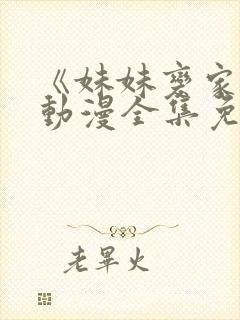 《妹妹齊家
動漫全集免
老畢火